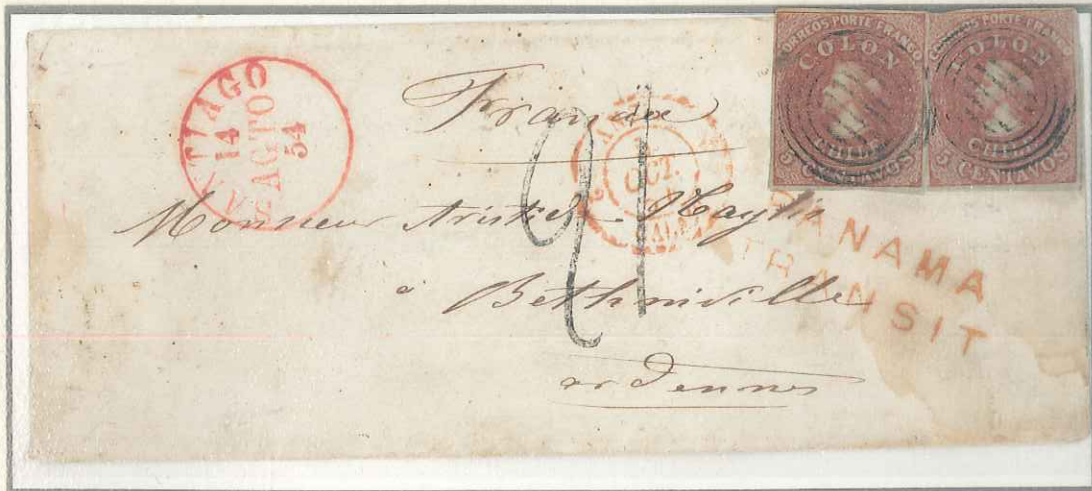 CORREOS PORTE FRANCO
COLON
CHILE
5 CENTAVOS
CORREOS PORTE FRANCO
COLON
CHILE
5 CENTAVOS
14
AGTO
54
France
21
OCT.
CALAI
Monsieur
PANAMA
TRANSIT
à Bethniville
ardennes